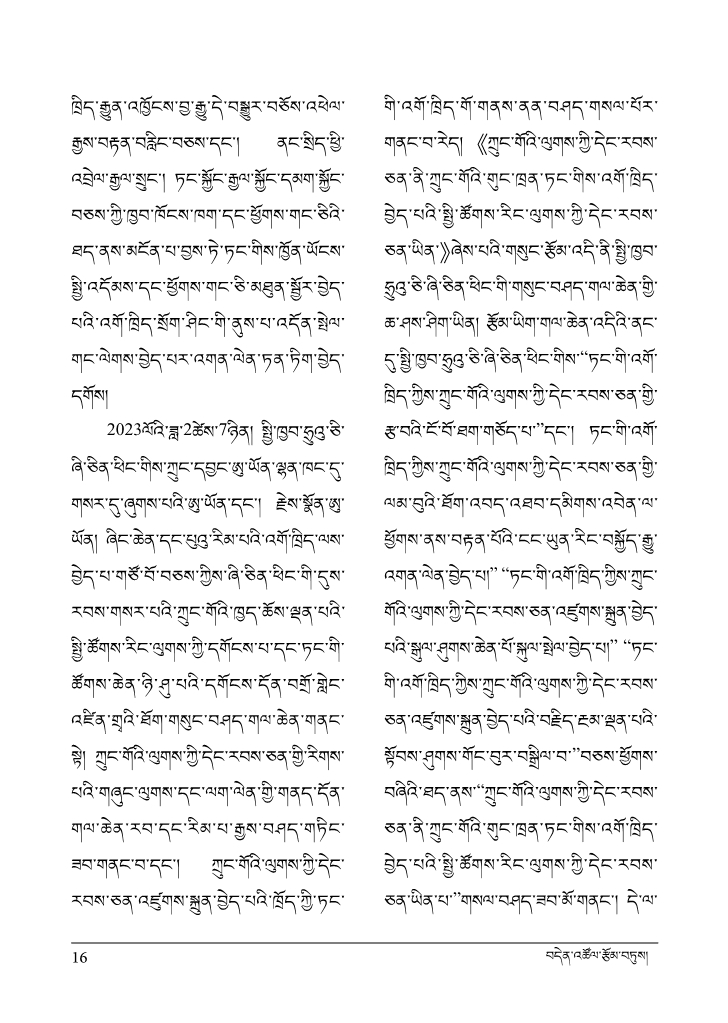 ཁྲིད་རྒྱུན་འཁྱོངས་བྱ་རྒྱུ་དེ་བསྒྱུར་བཅོས་འཕེལ་
རྒྱས་བརྟན་བརླིང་བཅས་དང་། ནང་སྲིད་ཕྱི་
འབྲེལ་རྒྱལ་སྲུང་། ཏང་སྐྱོང་རྒྱལ་སྐྱོང་དམག་སྐྱོང་
བཅས་ཀྱི་ཁྱབ་ཁོངས་ཁག་དང་ཕྱོགས་གང་ཅིའི་
ཐད་ནས་མངོན་པ་བྱས་ཏེ་ཏང་གིས་ཁྱོན་ཡོངས་
སྤྱི་འདོམས་དང་ཕྱོགས་གང་ཅི་མཐུན་སྦྱོར་བྱེད་
པའི་འགོ་ཁྲིད་སྲོག་ཤིང་གི་ནུས་པ་འདོན་སྤེལ་
གང་ལེགས་བྱེད་པར་འགན་ལེན་ཏན་ཏིག་བྱེད་
དགོས།
2023ལོའི་ཟླ་2ཚེས་7ཉིན། སྤྱི་ཁྱབ་ཧྲུའུ་ཅི་
ཞི་ཅིན་ཕིང་གིས་ཀྲུང་དབྱང་ཨུ་ཡོན་ལྷན་ཁང་དུ་
གསར་དུ་ཞུགས་པའི་ཨུ་ཡོན་དང་། རྗེས་སྣོན་ཨུ་
ཡོན། ཞིང་ཆེན་དང་པུའུ་རིམ་པའི་འགོ་ཁྲིད་ལས་
བྱེད་པ་གཙོ་བོ་བཅས་ཀྱིས་ཞི་ཅིན་ཕིང་གི་དུས་
རབས་གསར་པའི་ཀྲུང་གོའི་ཁྱད་ཆོས་ལྡན་པའི་
སྤྱི་ཚོགས་རིང་ལུགས་ཀྱི་དགོངས་པ་དང་ཏང་གི་
ཚོགས་ཆེན་ཉི་ཤུ་པའི་དགོངས་དོན་བགྲོ་གླེང་
འཛིན་གྲྭའི་ཐོག་གསུང་བཤད་གལ་ཆེན་གནང་
སྟེ། ཀྲུང་གོའི་ལུགས་ཀྱི་དེང་རབས་ཅན་གྱི་རིགས་
པའི་གཞུང་ལུགས་དང་ལག་ལེན་གྱི་གནད་དོན་
གལ་ཆེན་རབ་དང་རིམ་པ་རྒྱས་བཤད་གཏིང་
ཟབ་གནང་བ་དང་། ཀྲུང་གོའི་ལུགས་ཀྱི་དེང་
རབས་ཅན་འཛུགས་སྐྲུན་བྱེད་པའི་ཁྲོད་ཀྱི་ཏང་
གི་འགོ་ཁྲིད་གོ་གནས་ནན་བཤད་གསལ་པོར་
གནང་བ་རེད། 《ཀྲུང་གོའི་ལུགས་ཀྱི་དེང་རབས་
ཅན་ནི་ཀྲུང་གོའི་གུང་ཁྲན་ཏང་གིས་འགོ་ཁྲིད་
བྱེད་པའི་སྤྱི་ཚོགས་རིང་ལུགས་ཀྱི་དེང་རབས་
ཅན་ཡིན་》ཞེས་པའི་གསུང་རྩོམ་འདི་ནི་སྤྱི་ཁྱབ་
ཧྲུའུ་ཅི་ཞི་ཅིན་ཕིང་གི་གསུང་བཤད་གལ་ཆེན་གྱི་
ཆ་ཤས་ཤིག་ཡིན། རྩོམ་ཡིག་གལ་ཆེན་འདིའི་ནང་
དུ་སྤྱི་ཁྱབ་ཧྲུའུ་ཅི་ཞི་ཅིན་ཕིང་གིས་“ཏང་གི་འགོ་
ཁྲིད་ཀྱིས་ཀྲུང་གོའི་ལུགས་ཀྱི་དེང་རབས་ཅན་གྱི་
རྩ་བའི་ངོ་བོ་ཐག་གཅོད་པ་”དང་། ཏང་གི་འགོ་
ཁྲིད་ཀྱིས་ཀྲུང་གོའི་ལུགས་ཀྱི་དེང་རབས་ཅན་གྱི་
ལམ་བུའི་ཐོག་འབད་འཐབ་དམིགས་འབེན་ལ་
ཕྱོགས་ནས་བརྟན་པོའི་ངང་ཡུན་རིང་བསྐྱོད་རྒྱུ་
འགན་ལེན་བྱེད་པ།” “ཏང་གི་འགོ་ཁྲིད་ཀྱིས་ཀྲུང་
གོའི་ལུགས་ཀྱི་དེང་རབས་ཅན་འཛུགས་སྐྲུན་བྱེད་
པའི་སྒུལ་ཤུགས་ཆེན་པོ་སྐུལ་སྤེལ་བྱེད་པ།” “ཏང་
གི་འགོ་ཁྲིད་ཀྱིས་ཀྲུང་གོའི་ལུགས་ཀྱི་དེང་རབས་
ཅན་འཛུགས་སྐྲུན་བྱེད་པའི་བརྗིད་རྔམ་ལྡན་པའི་
སྟོབས་ཤུགས་གོང་བུར་བསྒྲིལ་བ་”བཅས་ཕྱོགས་
བཞིའི་ཐད་ནས་“ཀྲུང་གོའི་ལུགས་ཀྱི་དེང་རབས་
ཅན་ནི་ཀྲུང་གོའི་གུང་ཁྲན་ཏང་གིས་འགོ་ཁྲིད་
བྱེད་པའི་སྤྱི་ཚོགས་རིང་ལུགས་ཀྱི་དེང་རབས་
ཅན་ཡིན་པ་”གསལ་བཤད་ཟབ་མོ་གནང་། དེ་ལ་
16
བདེན་འཚོལ་རྩོམ་བཏུས།